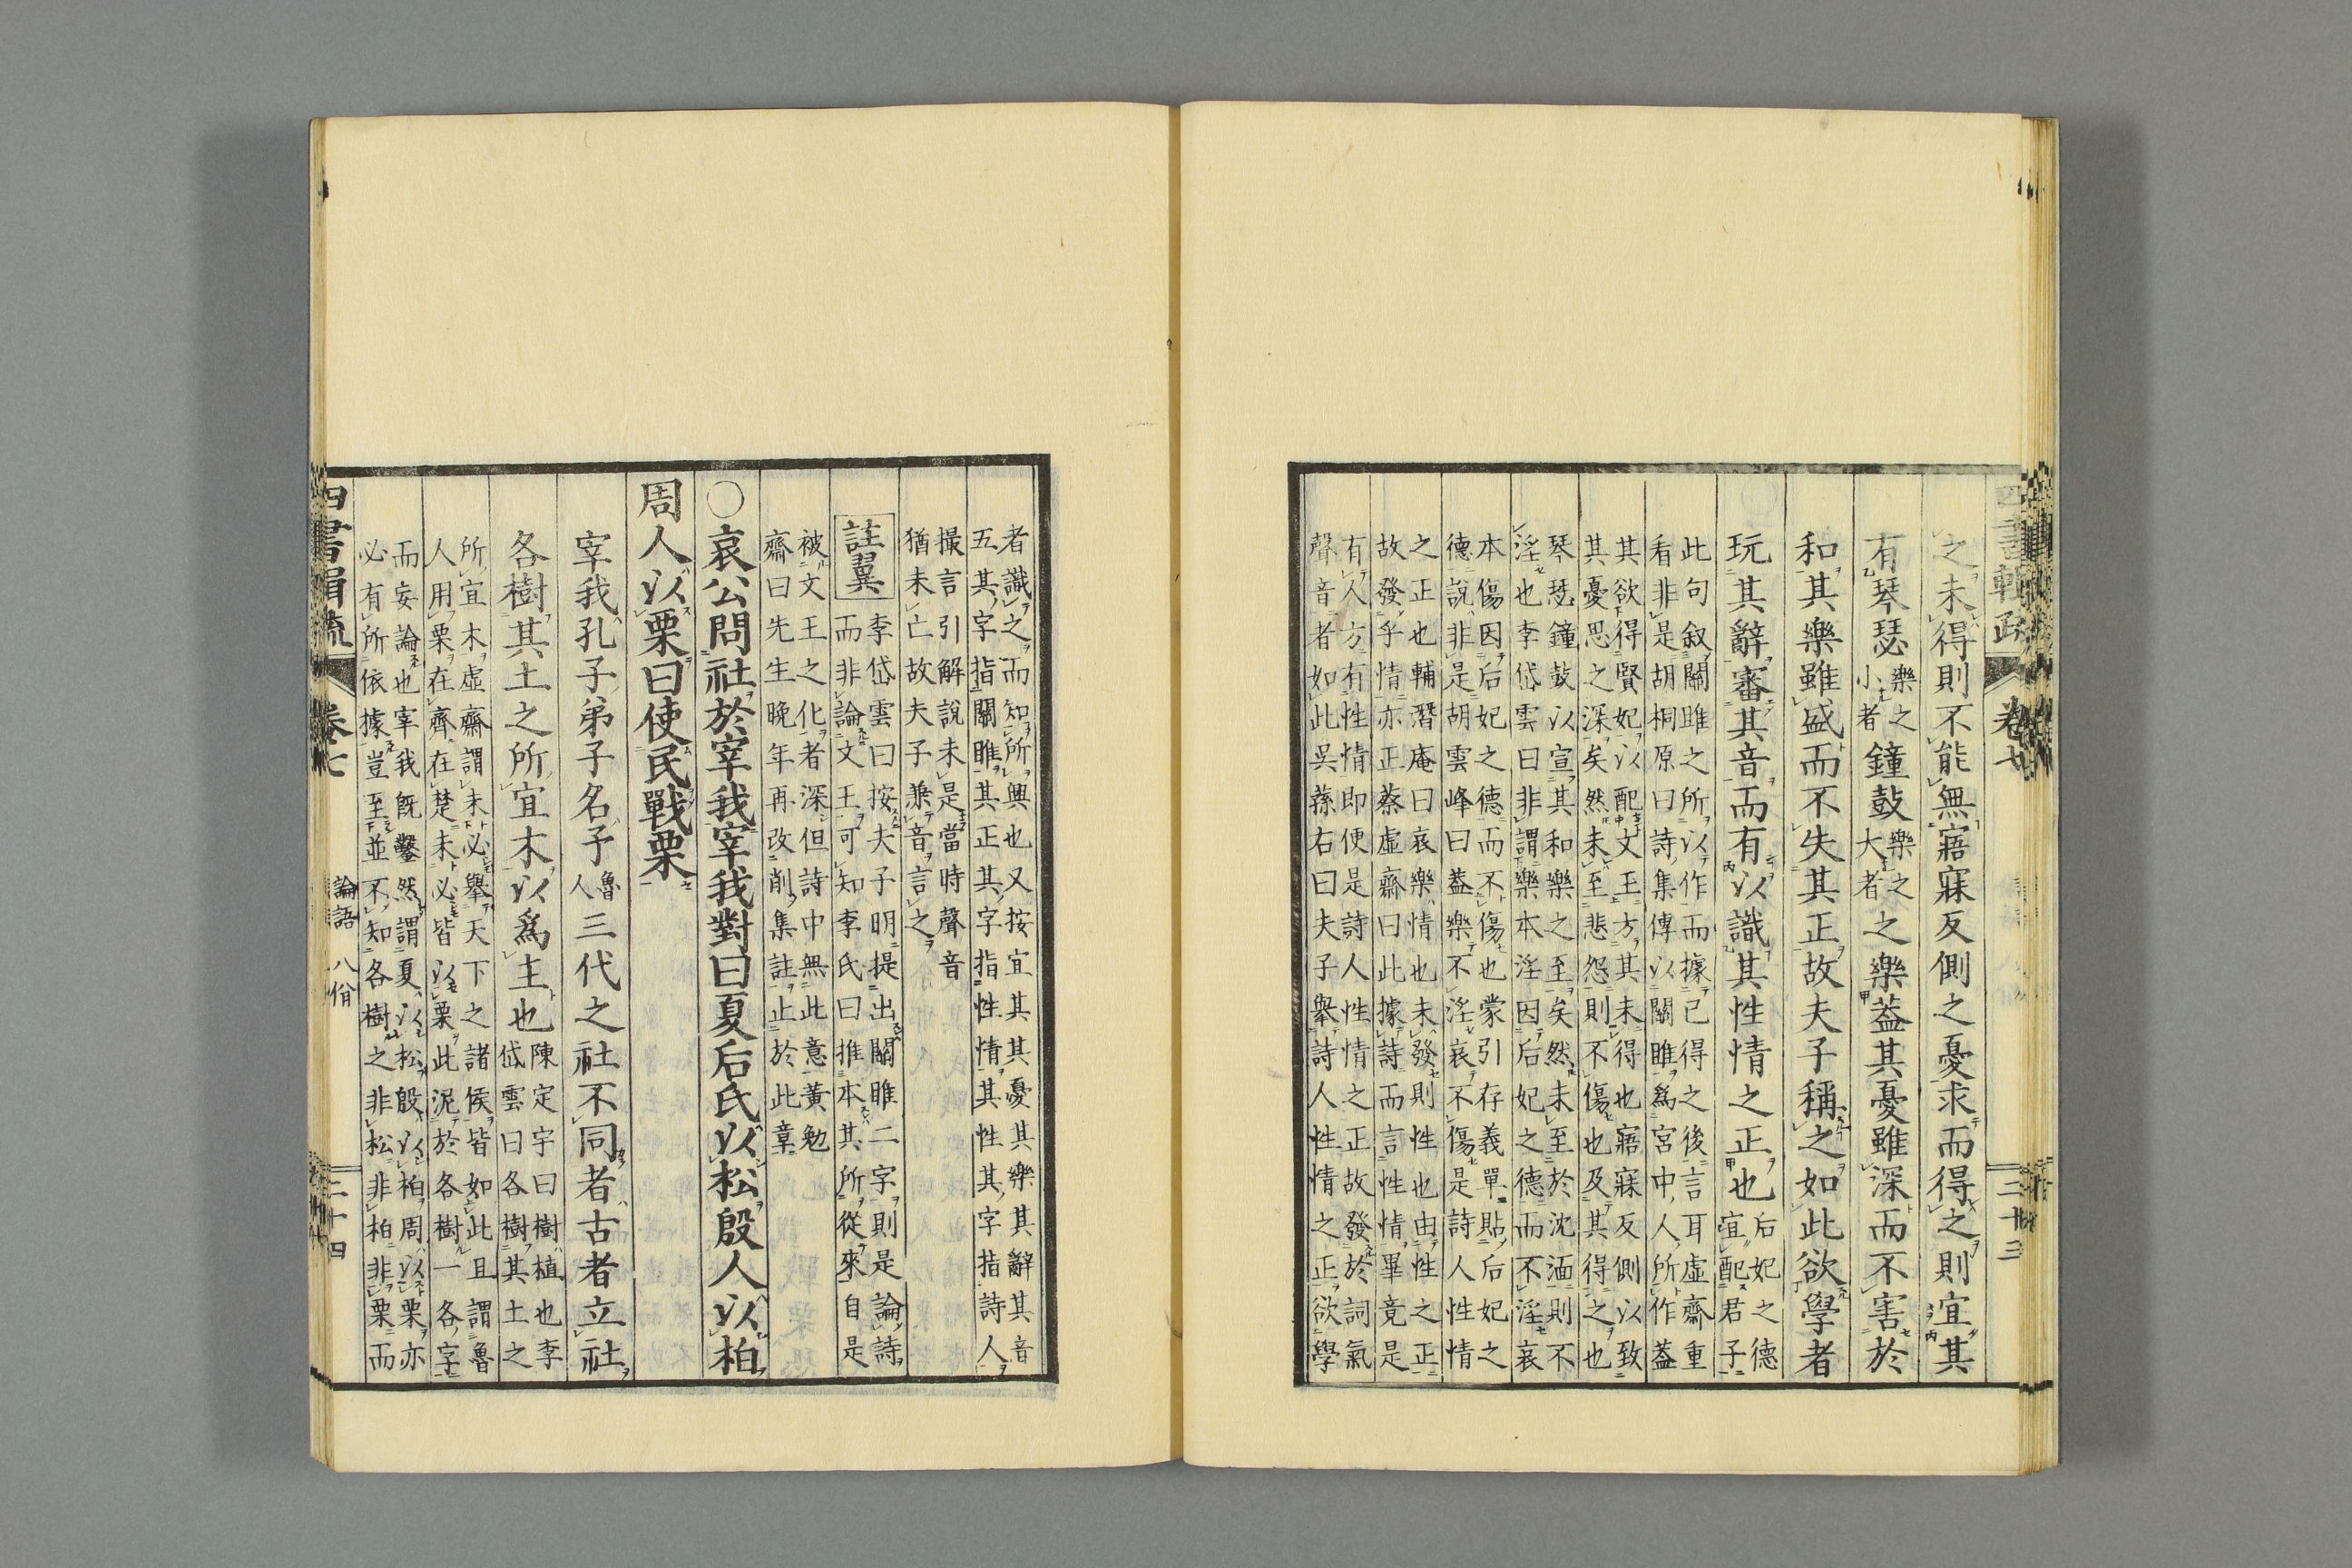 之未得則不能無寤寐反側之憂求而得之則宜其
有琴瑟樂之小者鐘鼓樂之大者之樂蓋其憂雖深而不害於
和其樂雖盛而不失其正故夫子稱之如此欲學者
玩其辭審其音而有以識其性情之正也后妃之德宜配君子
此句叙關雎之所以作而據已得之後言耳虛齋重
看非是胡桐原曰詩集傳以關雎爲宮中人所作蓋
其欲得賢妃以配文王方其未得也寤寐反側以致
其憂思之深矣然未至悲怨則不傷也及其得之也
琴瑟鐘鼓以宣其和樂之至矣然未至於沈湎則不
淫也李岱雲曰非謂樂本淫因后妃之德而不淫哀
本傷因后妃之德而不傷也蒙引存義單貼后妃之
德說非是胡雲峰曰蓋樂不淫哀不傷是詩人性情
之正也輔潛庵曰哀樂情也未發則性也由性之正
故發乎情亦正蔡虛齋曰此據詩而言性情畢竟是
有人方有性情即便是詩人性情之正故發於詞氣
聲音者如此吴蓀右曰夫子舉詩人性情之正欲學
卷七
三十三
者識之而知所興也又按宜其其憂其樂其辭其音
五其字指關雎其正其字指性情其性其字指詩人
撮言引解說未是當時聲音
猶未亡故夫子兼音言之
註翼
李岱雲曰按夫子明提出關雎二字則是論詩
而非論文王可知李氏曰推本其所從來自是
被文王之化者深但詩中無此意黃勉
齋曰先生晚年再改削集註止於此章
○哀公問社於宰我宰我對曰夏后氏以松殷人以柏
周人以栗曰使民戰栗
宰我孔子弟子名予魯人三代之社不同者古者立社
各樹其土之所宜木以爲主也陳定宇曰樹植也李岱雲曰各樹其土之
所宜木虛齋謂未必舉天下之諸侯皆如此且謂魯
人用栗在齊在楚未必皆以栗此泥於各樹一各字
而妄論也宰我既鑿然謂夏以松殷以柏周以栗亦
必有所依據豈至並不知各樹之非松非柏非栗而
卷七
論語 八佾
三十四